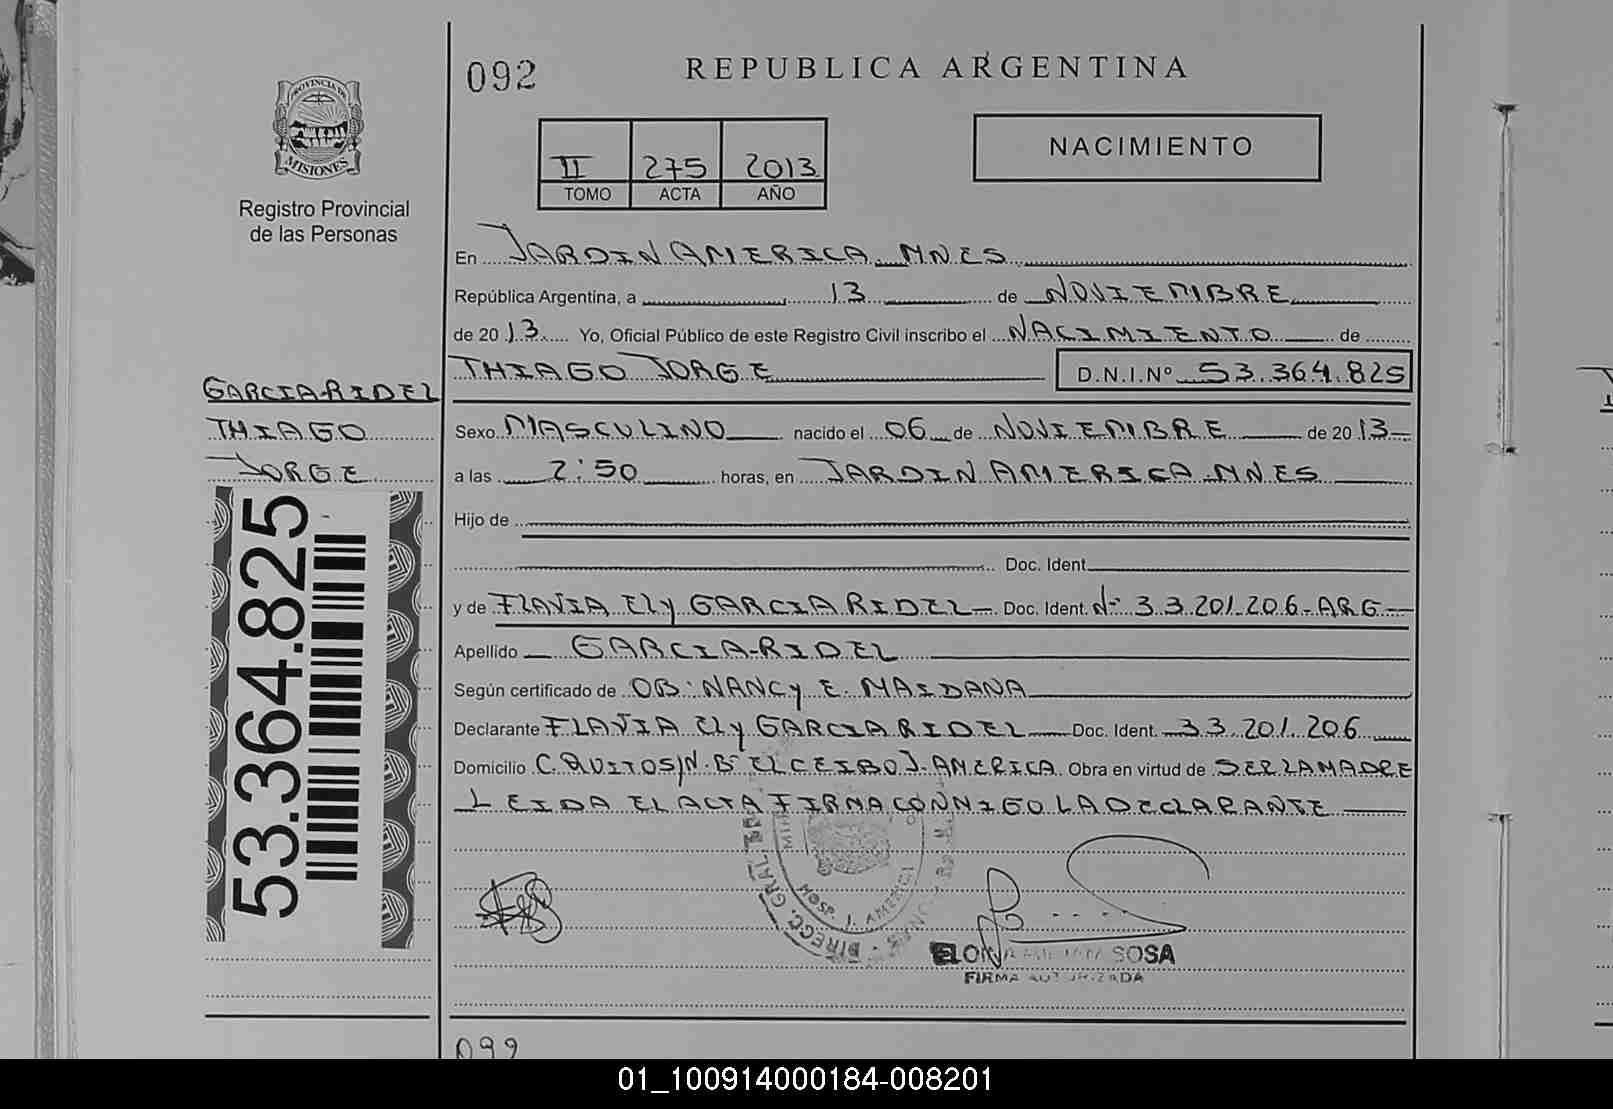 092
REPUBLICA ARGENTINA
PROVINCIA DE
MISIONES
Registro Provincial
de las Personas
II 275 2013
TOMO ACTA AÑO
NACIMIENTO
En JARDIN AMERICA MNES
República Argentina, a 13 de NOVIEMBRE
de 2013 Yo, Oficial Público de este Registro Civil inscribo el NACIMIENTO de
THIAGO JORGE D.N.I.Nº 53.364.825
GARCIA-RIDEL
THIAGO
JORGE
53.364.825
Sexo MASCULINO nacido el 06 de NOVIEMBRE de 2013
a las 2:50 horas, en JARDIN AMERICA MNES
Hijo de
Doc. Ident.
y de FLAVIA ELY GARCIA RIDEL Doc. Ident. Nº 33.201.206-ARG
Apellido GARCIA-RIDEL
Según certificado de OB: NANCY E. MAIDANA
Declarante FLAVIA ELY GARCIA RIDEL Doc. Ident. 33.201.206
Domicilio C. QUITO S/N. Bº EL CEIBO J. AMERICA Obra en virtud de SER LA MADRE
LEIDA EL ACTA FIRMA CONMIGO LA DECLARANTE
DIRECC. GRAL.
HOSP. J. AMERICA
SOSA
FIRMA AUTORIZADA
099
01_100914000184-008201